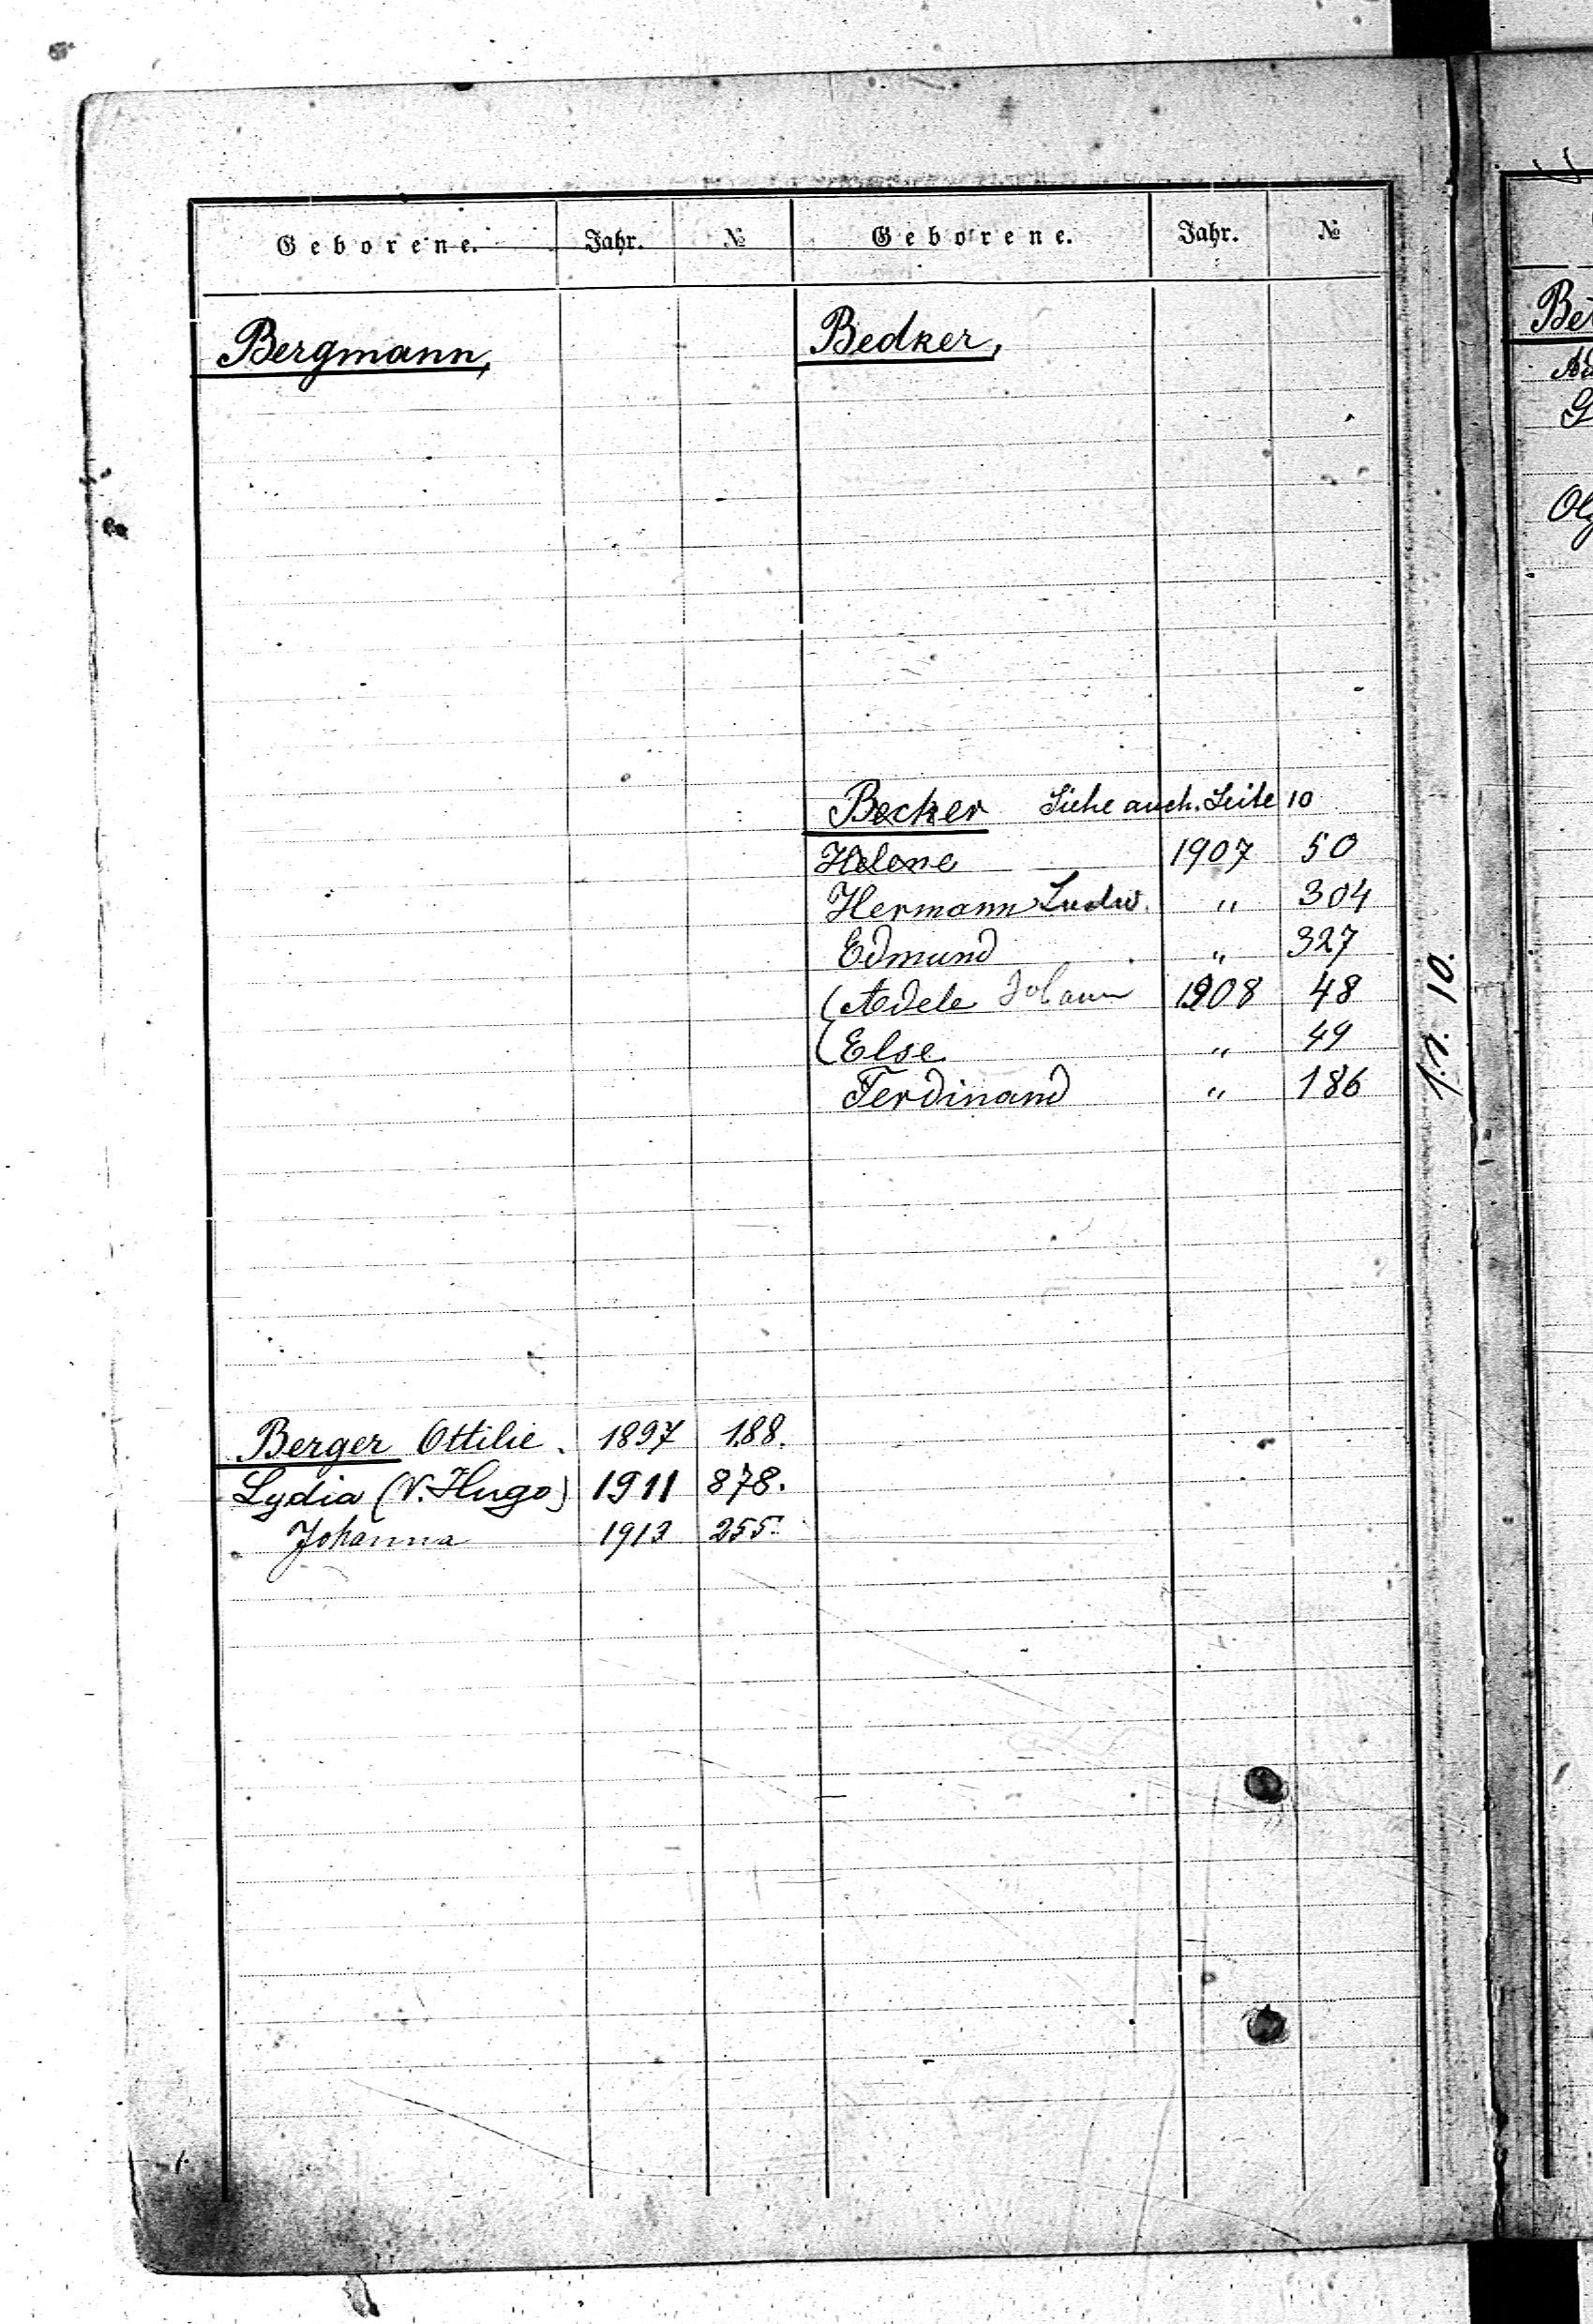 Geborene. Jahr. № Geborene. Jahr. №
Bergmann,
Berger Ottilie. 1897 188.
Lydia (V. Hugo) 1911 878.
Johanna 1913 255.
Bedker,
Becker Siehe auch. Seite 10
Helene 1907 50
Hermann Ludw. " 304
Edmund " 327
(Adele Johann 1908 48
(Else " 49
Ferdinand " 186
10.
Be